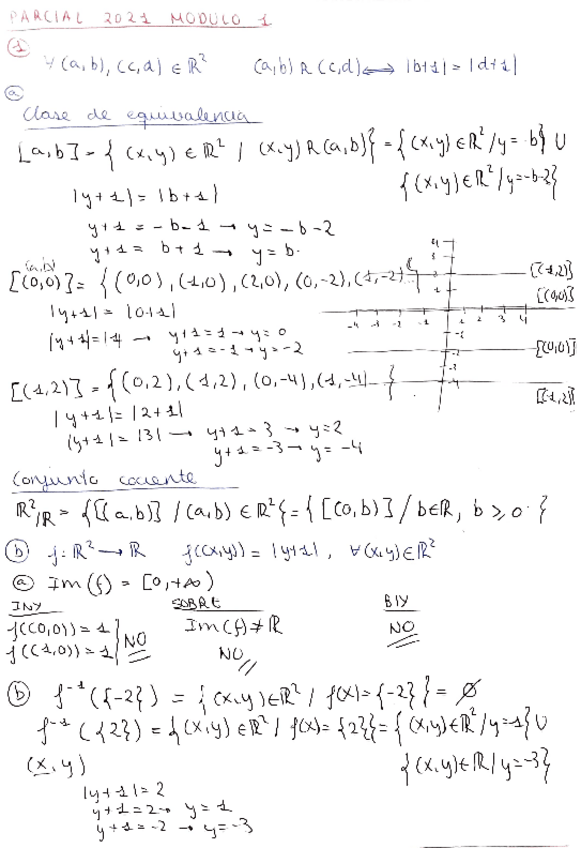 PARCIAL 2021 MODULO 1
①
∀ (a,b), (c,d) ∈ ℝ² (a,b) R (c,d) ⟺ |b+1| = |d+1|
ⓐ
Clase de equivalencia
[a,b] = { (x,y) ∈ ℝ² / (x,y) R (a,b)} = { (x,y) ∈ ℝ² / y = b} ∪
{ (x,y) ∈ ℝ² / y = -b-2}
|y+1| = |b+1|
y+1 = -b-1 → y = -b-2
y+1 = b+1 → y = b.
(a,b)
[(0,0)] = { (0,0), (1,0), (2,0), (0,-2), (1,-2)
|y+1| = |0+1|
|y+1| = 1 → y+1 = 1 → y = 0
y+1 = -1 → y = -2
[(1,2)] = { (0,2), (1,2), (0,-4), (1,-4) }
|y+1| = |2+1|
|y+1| = |3| → y+1 = 3 → y = 2
y+1 = -3 → y = -4
4
3
2
1
[(1,2)]
[(0,0)]
-4 -3 -2 -1 1 2 3 4
-1
-2
[(0,0)]
-3
-4
[(1,2)]
Conjunto cociente
ℝ²/R = {[(a,b)] / (a,b) ∈ ℝ²} = { [(0,b)] / b∈ℝ, b ≥ 0 }
ⓑ f: ℝ² → ℝ f((x,y)) = |y+1|, ∀(x,y) ∈ ℝ²
ⓐ Im(f) = [0,+∞)
INY SOBRE BIY
f((0,0)) = 1 Im(f) ≠ ℝ NO
f((1,0)) = 1 NO NO
ⓑ f⁻¹({-2}) = { (x,y) ∈ ℝ² / f(x) = {-2}} = ∅
f⁻¹({2}) = { (x,y) ∈ ℝ² / f(x) = {2}} = { (x,y) ∈ ℝ² / y = 1} ∪
(x,y) { (x,y) ∈ ℝ / y = -3}
|y+1| = 2
y+1 = 2 → y = 1
y+1 = -2 → y = -3